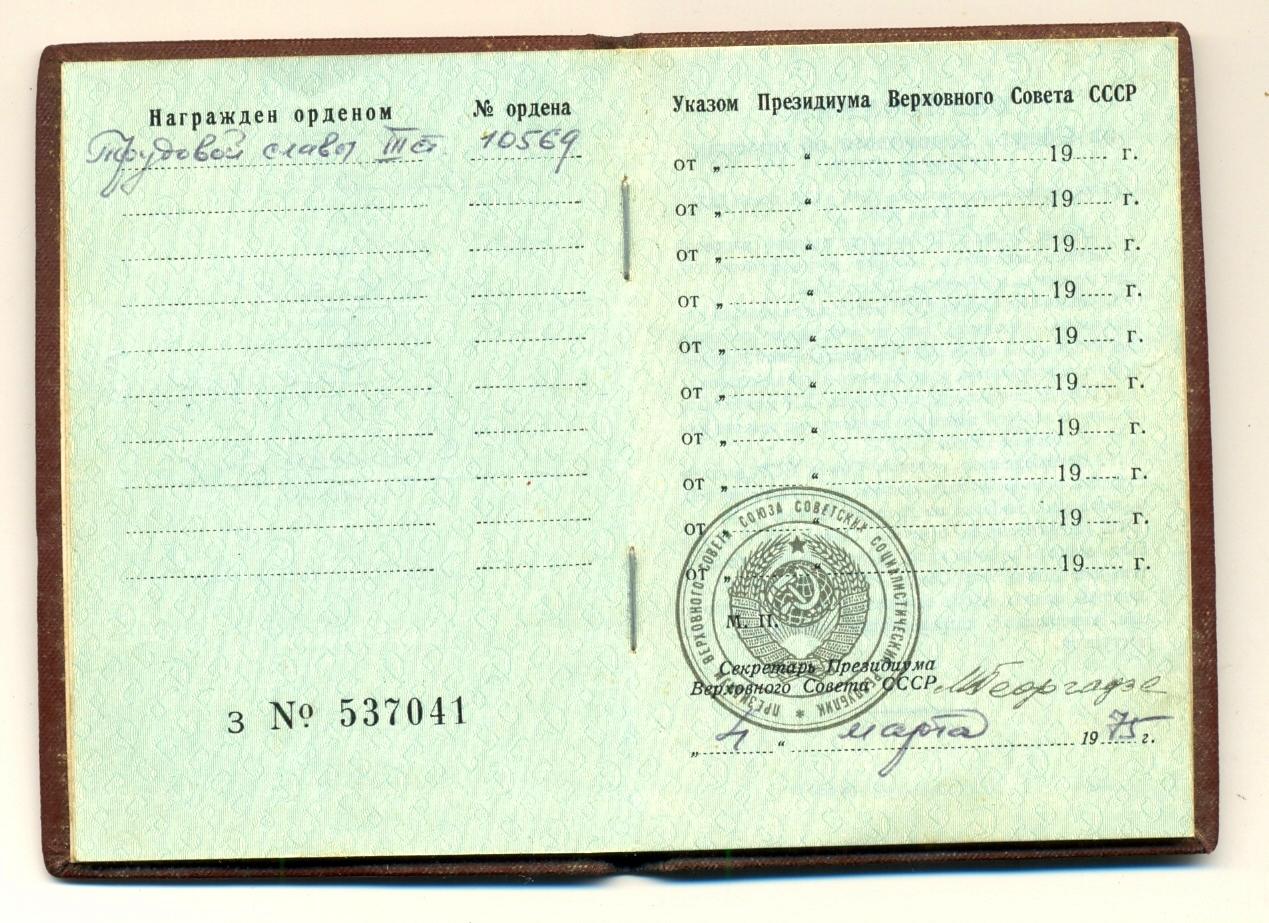 Награжден орденом
№ ордена
Трудовой славы III ст.
10569
З № 537041
Указом Президиума Верховного Совета СССР
от „ “ 19 г.
от „ “ 19 г.
от „ “ 19 г.
от „ “ 19 г.
от „ “ 19 г.
от „ “ 19 г.
от „ “ 19 г.
от „ “ 19 г.
от „ “ 19 г.
от „ “ 19 г.
ПРЕЗИДИУМ ВЕРХОВНОГО СОВЕТА СОЮЗА СОВЕТСКИХ СОЦИАЛИСТИЧЕСКИХ РЕСПУБЛИК
М. П.
Секретарь Президиума
Верховного Совета СССР МГеоргадзе
„ 4 “ марта 1975 г.